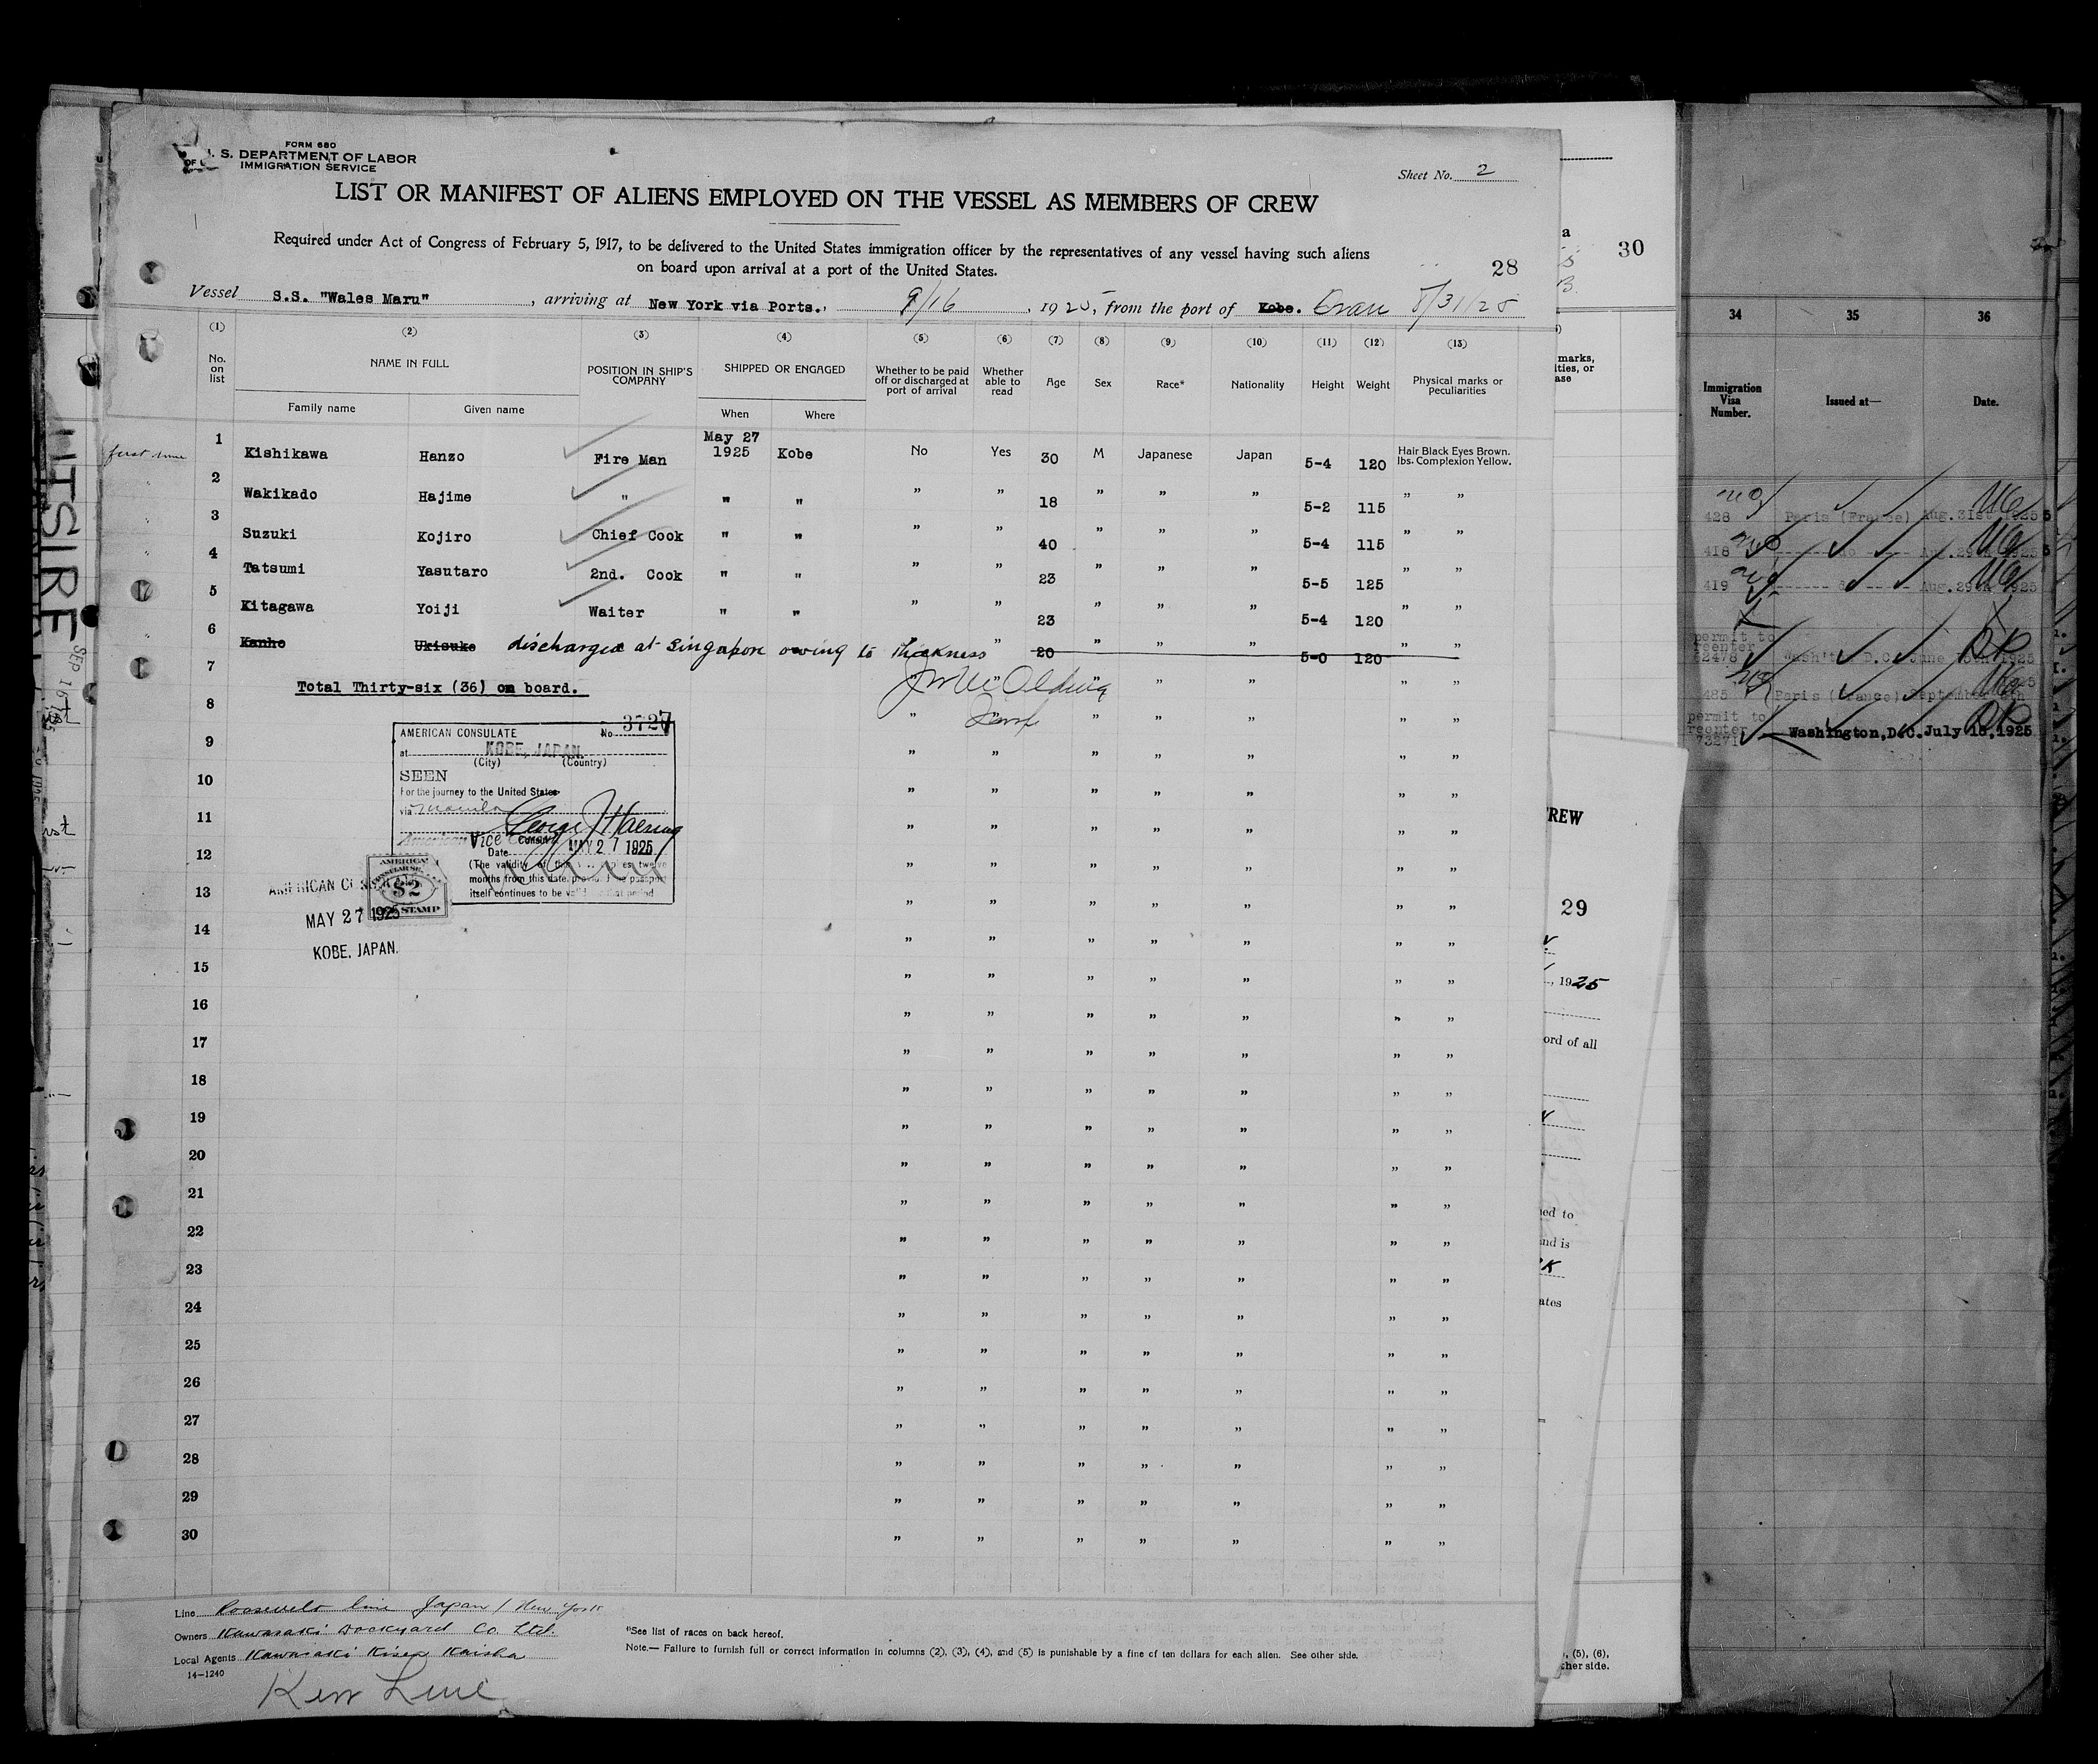 FORM 680
U. S. DEPARTMENT OF LABOR
IMMIGRATION SERVICE
Sheet No. 2
LIST OR MANIFEST OF ALIENS EMPLOYED ON THE VESSEL AS MEMBERS OF CREW
Required under Act of Congress of February 5, 1917, to be delivered to the United States immigration officer by the representatives of any vessel having such aliens
on board upon arrival at a port of the United States.
28
Vessel S.S. "Wales Maru", arriving at New York via Ports., 9/16, 1925, from the port of Kobe. Oran 8/31/25
(1) (2) (3) (4) (5) (6) (7) (8) (9) (10) (11) (12) (13)
No. on list
NAME IN FULL
Family name
Given name
POSITION IN SHIP'S COMPANY
SHIPPED OR ENGAGED
When
Where
Whether to be paid off or discharged at port of arrival
Whether able to read
Age
Sex
Race*
Nationality
Height
Weight
Physical marks or peculiarities
first time
1 Kishikawa Hanzo Fire Man May 27 1925 Kobe No Yes 30 M Japanese Japan 5-4 120 Hair Black Eyes Brown. lbs. Complexion Yellow.
2 Wakikado Hajime " " " " " 18 " " " 5-2 115 " "
3 Suzuki Kojiro Chief Cook " " " " 40 " " " 5-4 115 " "
4 Tatsumi Yasutaro 2nd. Cook " " " " 23 " " " 5-5 125 " "
5 Kitagawa Yoiji Waiter " " " " 23 " " " 5-4 120 " "
6 Kanho Ukisuke discharged at Singapore owing to thickness " 20 " " " 5-0 120 " "
7 Total Thirty-six (36) on board. " " " " " "
8 " " " " " " "
9 " " " " " " "
10 " " " " " " "
11 " " " " " " "
12 " " " " " " "
13 " " " " " " "
14 " " " " " " "
15 " " " " " " "
16 " " " " " " "
17 " " " " " " "
18 " " " " " " "
19 " " " " " " "
20 " " " " " " "
21 " " " " " " "
22 " " " " " " "
23 " " " " " " "
24 " " " " " " "
25 " " " " " " "
26 " " " " " " "
27 " " " " " " "
28 " " " " " " "
29 " " " " " " "
30 " " " " " " "
AMERICAN CONSULATE No. 3727
at KOBE, JAPAN.
(City) (Country)
SEEN
For the journey to the United States
via Manila
American Vice Consul
Date MAY 27 1925
(The validity of this
months from this date, provided the passport
itself continues to be valid
AMERICAN
CONSULAR
$2
STAMP
MAY 27 1925
KOBE, JAPAN.
Line Roosevelt line Japan / New York
Owners Kawasaki Dockyard Co. Ltd.
Local Agents Kawasaki Kisen Kaisha
14-1240
Kerr Line
*See list of races on back hereof.
Note.— Failure to furnish full or correct information in columns (2), (3), (4), and (5) is punishable by a fine of ten dollars for each alien. See other side.
30
marks,
REW
29
, 1925
ord of all
and is
(5), (6),
her side.
34 35 36
Immigration Visa Number.
Issued at—
Date.
428 Paris (France) Aug. 31st 1925
418 do
419 Aug. 29th 1925
permit to reenter
485 Paris (France) September
permit to reenter 73271 Washington, D.C. July 15, 1925
SEP 16